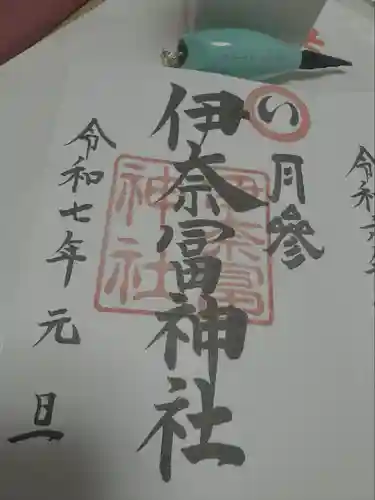 い
月參
伊奈冨神社
伊奈冨
神社
令和七年元旦
令和六年